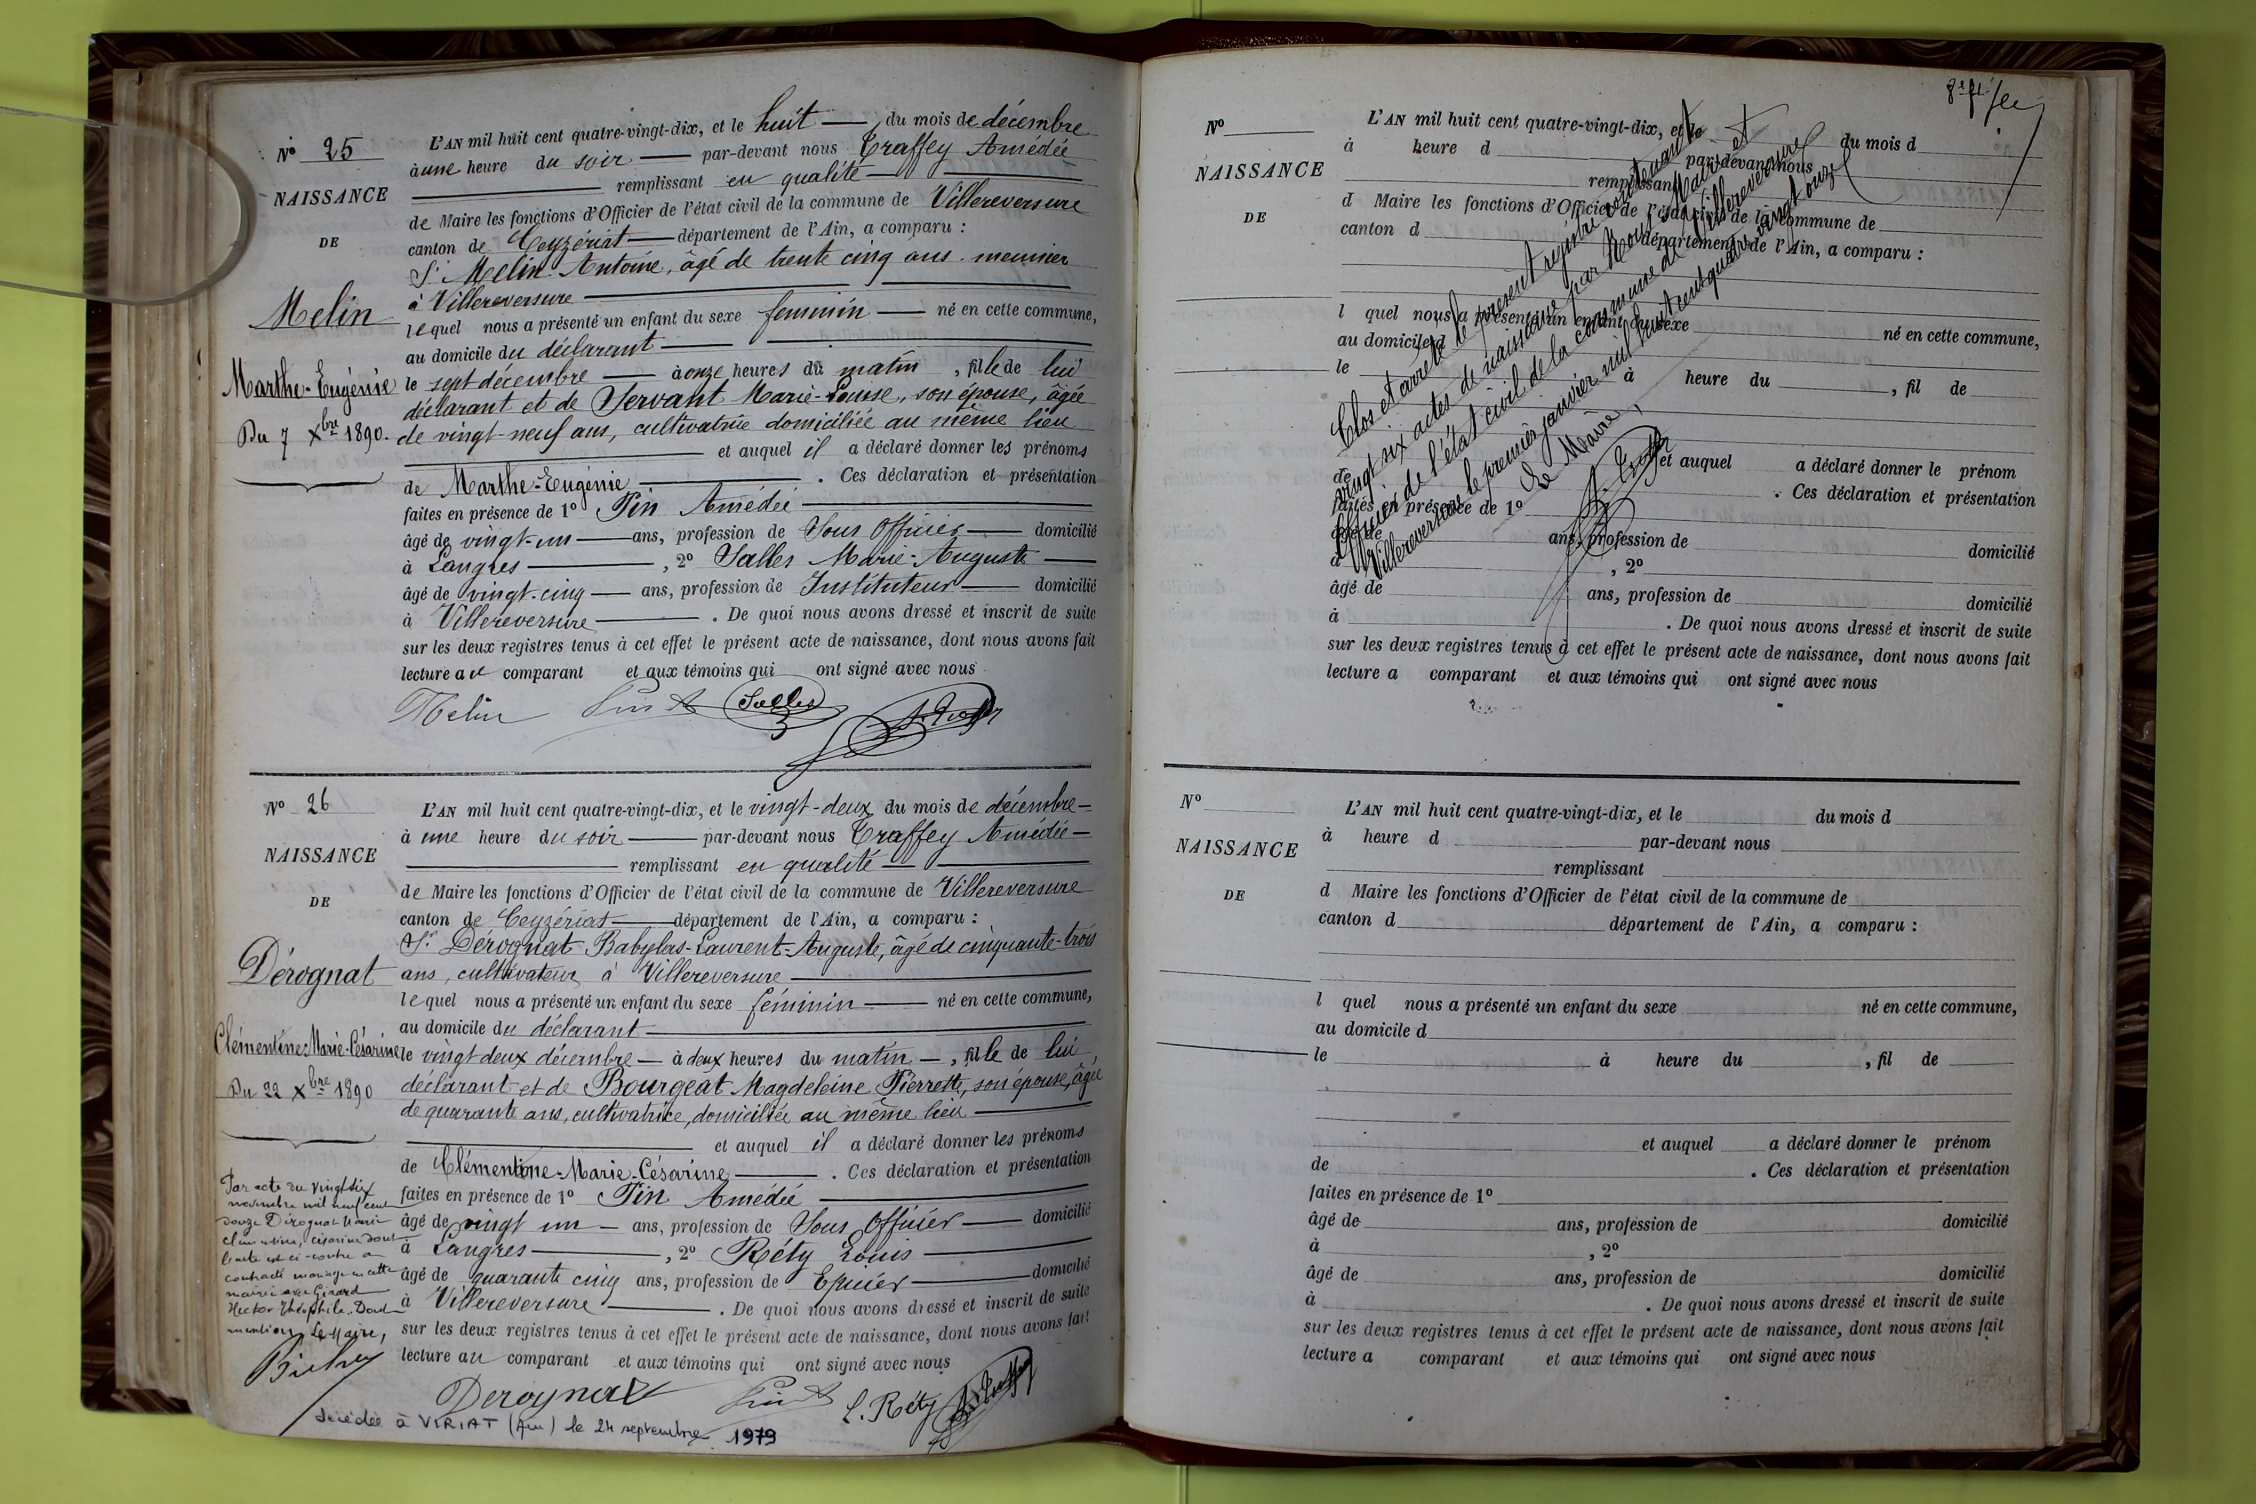 N° 25
NAISSANCE
DE
Melin
Marthe-Eugénie
Du 7 Xbre 1890.
L'AN mil huit cent quatre-vingt-dix, et le huit du mois de décembre
à une heure du soir par-devant nous Traffey Amédée
remplissant en qualité
de Maire les fonctions d'Officier de l'état civil de la commune de Villereversure
canton de Ceyzériat département de l'Ain, a comparu :
Sr Melin Antoine, âgé de trente cinq ans meunier
à Villereversure
lequel nous a présenté un enfant du sexe feminin né en cette commune,
au domicile du déclarant
le sept décembre à onze heures du matin, fille de lui
déclarant et de Servant Marie-Louise, son épouse, âgée
de vingt-neuf ans, cultivatrice domiciliée au même lieu
et auquel il a déclaré donner les prénoms
de Marthe-Eugénie. Ces déclaration et présentation
faites en présence de 1° Pin Amédée
âgé de vingt-un ans, profession de Sous Officier domicilié
à Langres, 2° Salles Marie-Auguste
âgé de vingt-cinq ans, profession de Instituteur domicilié
à Villereversure. De quoi nous avons dressé et inscrit de suite
sur les deux registres tenus à cet effet le présent acte de naissance, dont nous avons fait
lecture au comparant et aux témoins qui ont signé avec nous
Melin Pin A Salles A. Traffey
N° 26
NAISSANCE
DE
Dérognat
Clémentine-Marie-Césarine
Du 22 Xbre 1890
L'AN mil huit cent quatre-vingt-dix, et le vingt-deux du mois de décembre
à une heure du soir par-devant nous Traffey Amédée
remplissant en qualité
de Maire les fonctions d'Officier de l'état civil de la commune de Villereversure
canton de Ceyzériat département de l'Ain, a comparu :
Sr Dérognat Babylas-Laurent-Auguste, âgé de cinquante-trois
ans, cultivateur à Villereversure
lequel nous a présenté un enfant du sexe féminin né en cette commune,
au domicile du déclarant
le vingt deux décembre à deux heures du matin, fille de lui,
déclarant et de Bourgeat Magdeleine Pierrette, son épouse, âgée
de quarante ans, cultivatrice, domiciliée au même lieu
et auquel il a déclaré donner les prénoms
de Clémentine-Marie-Césarine. Ces déclaration et présentation
faites en présence de 1° Pin Amédée
âgé de vingt un ans, profession de Sous Officier domicilié
à Langres, 2° Réty Louis
âgé de quarante cinq ans, profession de Epicier domicilié
à Villereversure. De quoi nous avons dressé et inscrit de suite
sur les deux registres tenus à cet effet le présent acte de naissance, dont nous avons fait
lecture au comparant et aux témoins qui ont signé avec nous
Par acte du vingt six
novembre mil neuf cent
douze Dérognat Marie
Clémentine, césarine dont
l'acte est ci-contre a
contracté mariage en cette
mairie avec Girard
Hector Théophile. Dont
mention, Le Maire,
Derognat Pin A L. Réty A. Traffey
décédée à VIRIAT (Ain) le 24 septembre 1979
N°
NAISSANCE
DE
L'AN mil huit cent quatre-vingt-dix, et le du mois d
à heure d par-devant nous
remplissant
d Maire les fonctions d'Officier de l'état civil de la commune de
canton d département de l'Ain, a comparu :
l quel nous a présenté un enfant du sexe né en cette commune,
au domicile d
le à heure du, fil de
et auquel a déclaré donner le prénom
de. Ces déclaration et présentation
faites en présence de 1°
âgé de ans, profession de domicilié
à, 2°
âgé de ans, profession de domicilié
à. De quoi nous avons dressé et inscrit de suite
sur les deux registres tenus à cet effet le présent acte de naissance, dont nous avons fait
lecture a comparant et aux témoins qui ont signé avec nous
Clos et arrêté le présent registre contenant
vingt six actes de naissance par Nous, Maire et
Officier de l'état civil de la commune de Villereversure
Villereversure le premier janvier mil huit cent quatre vingt onze
Le Maire,
A. Traffey
N°
NAISSANCE
DE
L'AN mil huit cent quatre-vingt-dix, et le du mois d
à heure d par-devant nous
remplissant
d Maire les fonctions d'Officier de l'état civil de la commune de
canton d département de l'Ain, a comparu :
l quel nous a présenté un enfant du sexe né en cette commune,
au domicile d
le à heure du, fil de
et auquel a déclaré donner le prénom
de. Ces déclaration et présentation
faites en présence de 1°
âgé de ans, profession de domicilié
à, 2°
âgé de ans, profession de domicilié
à. De quoi nous avons dressé et inscrit de suite
sur les deux registres tenus à cet effet le présent acte de naissance, dont nous avons fait
lecture a comparant et aux témoins qui ont signé avec nous